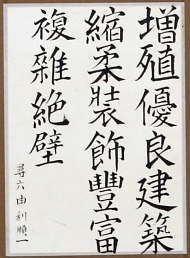 増殖優良建築
縮柔装飾豊富
複雑絶壁
尋六由利順一